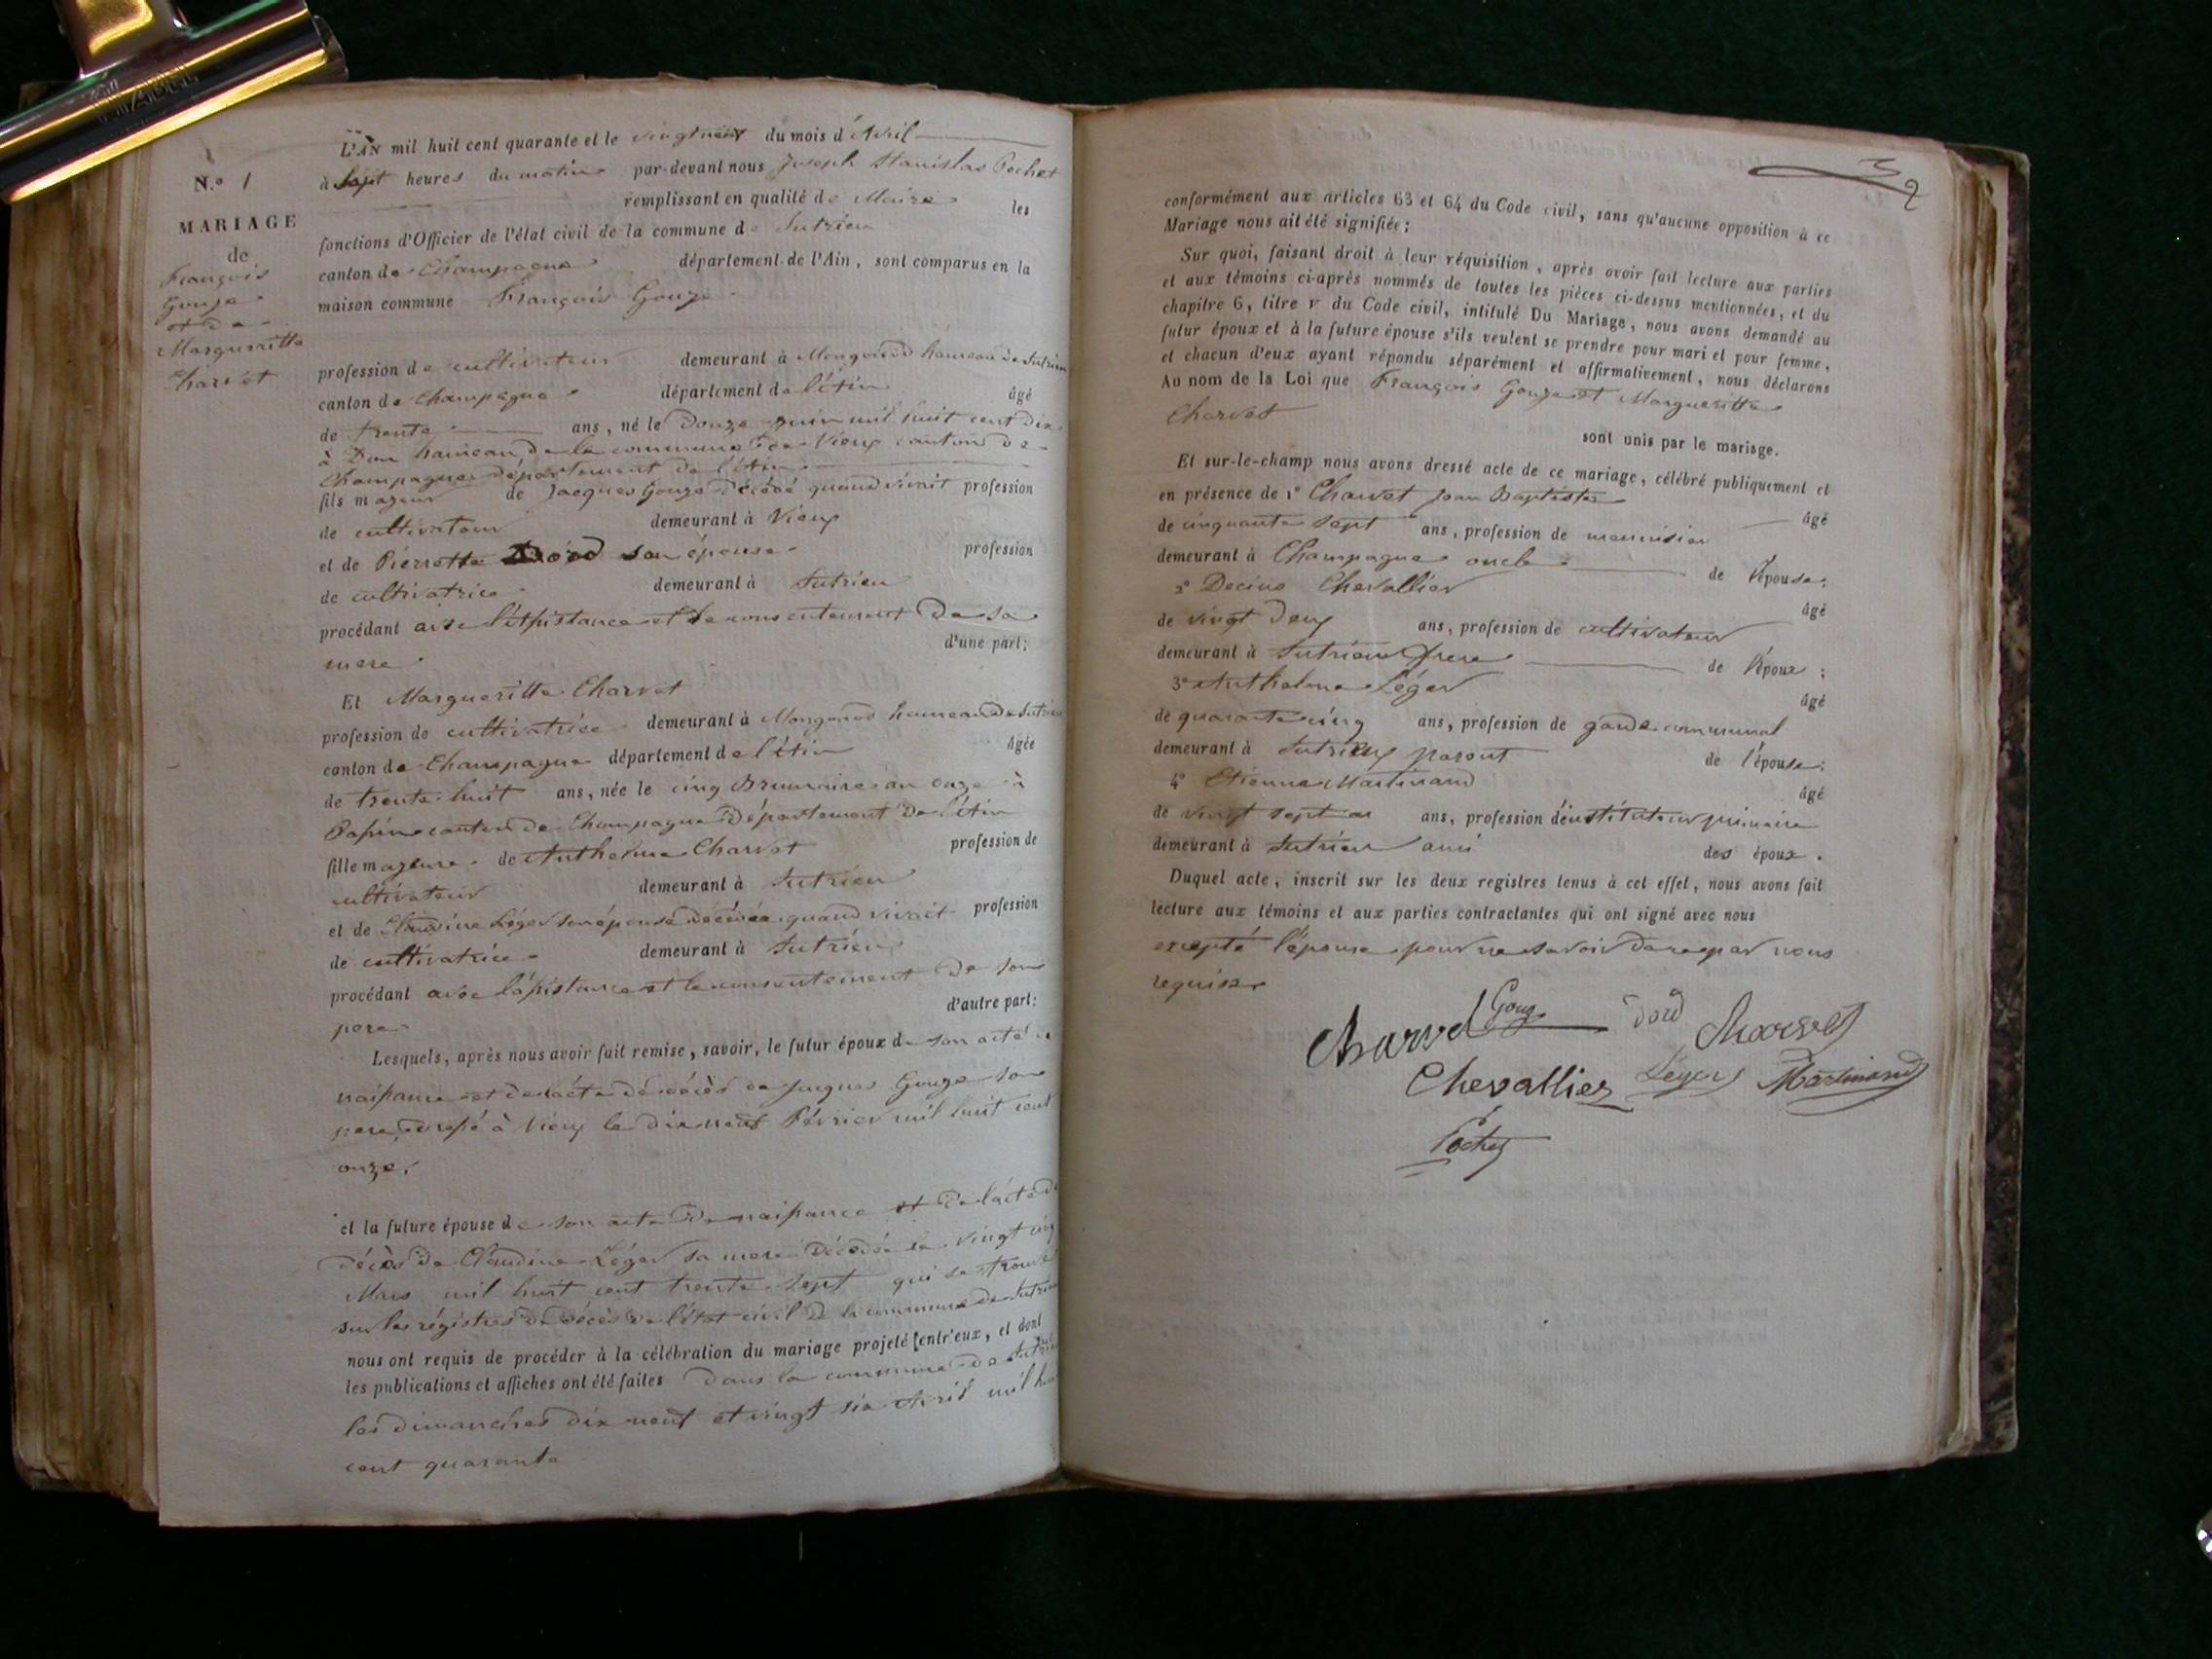 N.º 1
MARIAGE
de
François
Gouze
et de
Margueritte
Charvet
L'AN mil huit cent quarante et le vingt neuf du mois d'Avril
à sept heures du matin par-devant nous Joseph Stanislas Pochet
remplissant en qualité de Maire les
fonctions d'Officier de l'état civil de la commune de Sutrieu
canton de Champagne département de l'Ain, sont comparus en la
maison commune François Gouze
profession de cultivateur demeurant à Mongonod hameau de Sutrieu
canton de Champagne département de l'Ain âgé
de trente ans, né le Douze juin mil huit cent dix
à Don hameau de la commune de Vieux canton de
Champagne département de l'Ain
fils majeur de Jacques Gouze décédé quand vivait profession
de cultivateur demeurant à Vieux
et de Pierrette Dord son épouse profession
de cultivatrice demeurant à Sutrieu
procédant avec l'assistance et le consentement de sa
mere d'une part;
Et Margueritte Charvet
profession de cultivatrice demeurant à Mongonod hameau de Sutrieu
canton de Champagne département de l'Ain âgée
de trente huit ans, née le cinq Brumaire an onze à
canton de Champagne Département de l'Ain
fille majeure de Anthelme Charvet profession de
cultivateur demeurant à Sutrieu
et de Claudine Léger son épouse décédée quand vivait profession
de cultivatrice demeurant à Sutrieu
procédant avec l'assistance et le consentement de son
pere d'autre part:
Lesquels, après nous avoir fait remise, savoir, le futur époux de son acte de
naissance et de l'acte de décès de Jacques Gouze son
pere à Vieux le dix neuf Février mil huit cent
onze.
et la future épouse de son acte de naissance et de l'acte de
décès de Claudine Léger sa mere décédée le vingt cinq
Mars mil huit cent trente sept qui se trouve
sur les régistres de décès de l'état civil de la commune de Sutrieu
nous ont requis de procéder à la célébration du mariage projeté entr'eux, et dont
les publications et affiches ont été faites dans la commune de Sutrieu
les dimanches dix neuf et vingt six Avril mil huit
cent quarante
3
2
conformément aux articles 63 et 64 du Code civil, sans qu'aucune opposition à ce
Mariage nous ait été signifiée;
Sur quoi, faisant droit à leur réquisition, après avoir fait lecture aux parties
et aux témoins ci-après nommés de toutes les pièces ci-dessus mentionnées, et du
chapitre 6, titre v du Code civil, intitulé Du Mariage, nous avons demandé au
futur époux et à la future épouse s'ils veulent se prendre pour mari et pour femme,
et chacun d'eux ayant répondu séparément et affirmativement, nous déclarons
Au nom de la Loi que François Gouze et Margueritte
Charvet
sont unis par le mariage.
Et sur-le-champ nous avons dressé acte de ce mariage, célébré publiquement et
en présence de 1º Charvet Jean Baptiste
âgé
de cinquante sept ans, profession de menuisier
demeurant à Champagne oncle de l'épouse;
2º Decius Chevallier
âgé
de vingt deux ans, profession de cultivateur
demeurant à Sutrieu frere de l'époux;
3º Anthelme Léger
âgé
de quarante cinq ans, profession de garde communal
demeurant à Sutrieu parent de l'épouse;
4º Etienne Martinand
âgé
de vingt sept ans, profession d'instituteur primaire
demeurant à Sutrieu ami des époux.
Duquel acte, inscrit sur les deux registres tenus à cet effet, nous avons fait
lecture aux témoins et aux parties contractantes qui ont signé avec nous
excepté l'épouse pour ne savoir de ce par nous
requise
Charvet Gouz Dord Charvet
Chevallier Léger Martinand
Pochet